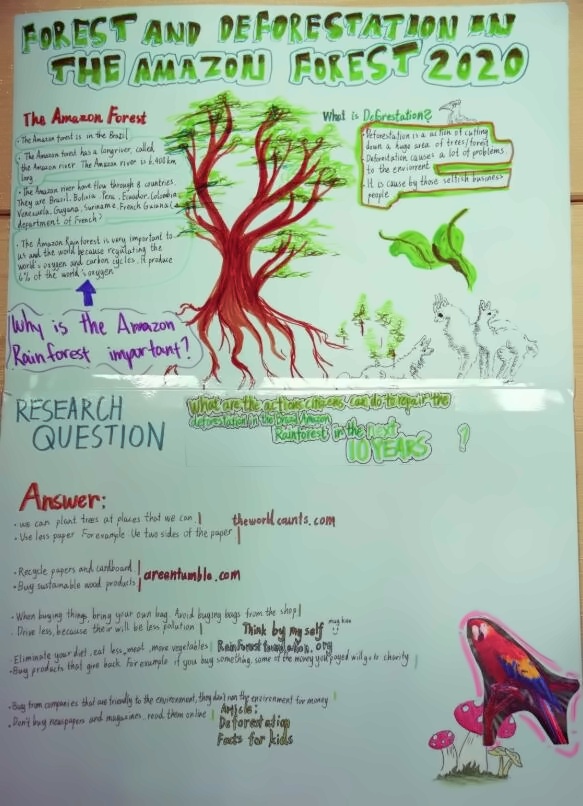 FOREST AND DEFORESTATION IN
THE AMAZON FOREST 2020
The Amazon Forest
• The Amazon forest is in the Brazil
• The Amazon forest has a long river, called
the Amazon river. The Amazon river is 6,400 km
long
• The Amazon river flow through 8 countries.
They are Brazil, Bolivia, Peru, Ecuador, Colombia,
Venezuela, Guyana, Suriname, French Guiana (
department of French)
• The Amazon Rainforest is very important to
us and the world because regulating the
world's oxygen and carbon cycles. It produce
6% of the world's oxygen
Why is the Amazon
Rainforest important?
What is Deforestation?
Deforestation is a action of cutting
down a huge area of trees/forest
Deforestation causes a lot of problems
to the enviorment
• It is cause by those selfish business
people
RESEARCH
QUESTION
What are the actions citizens can do to repair the
deforestation in the Amazon
Rainforest in the next
10 YEARS ?
Answer:
• we can plant trees at places that we can
theworldcounts.com
• Use less paper For example Use two sides of the paper
• Recycle papers and cardboard
• Buy sustainable wood products
greentumble.com
• When buying things, bring your own bag. Avoid buying bags from the shop
• Drive less, because their will be less polution
Think by my self
• Eliminate your diet, eat less meat, more vegetables
Rainforest foundation.org
• Buy products that give back. For example if you buy something, some of the money you payed will go to charity
• Buy from companies that are friendly to the environment, they don't ruin the environment for money
• Don't buy newspapers and magazines, read them online
Article:
Deforestation
Facts for kids